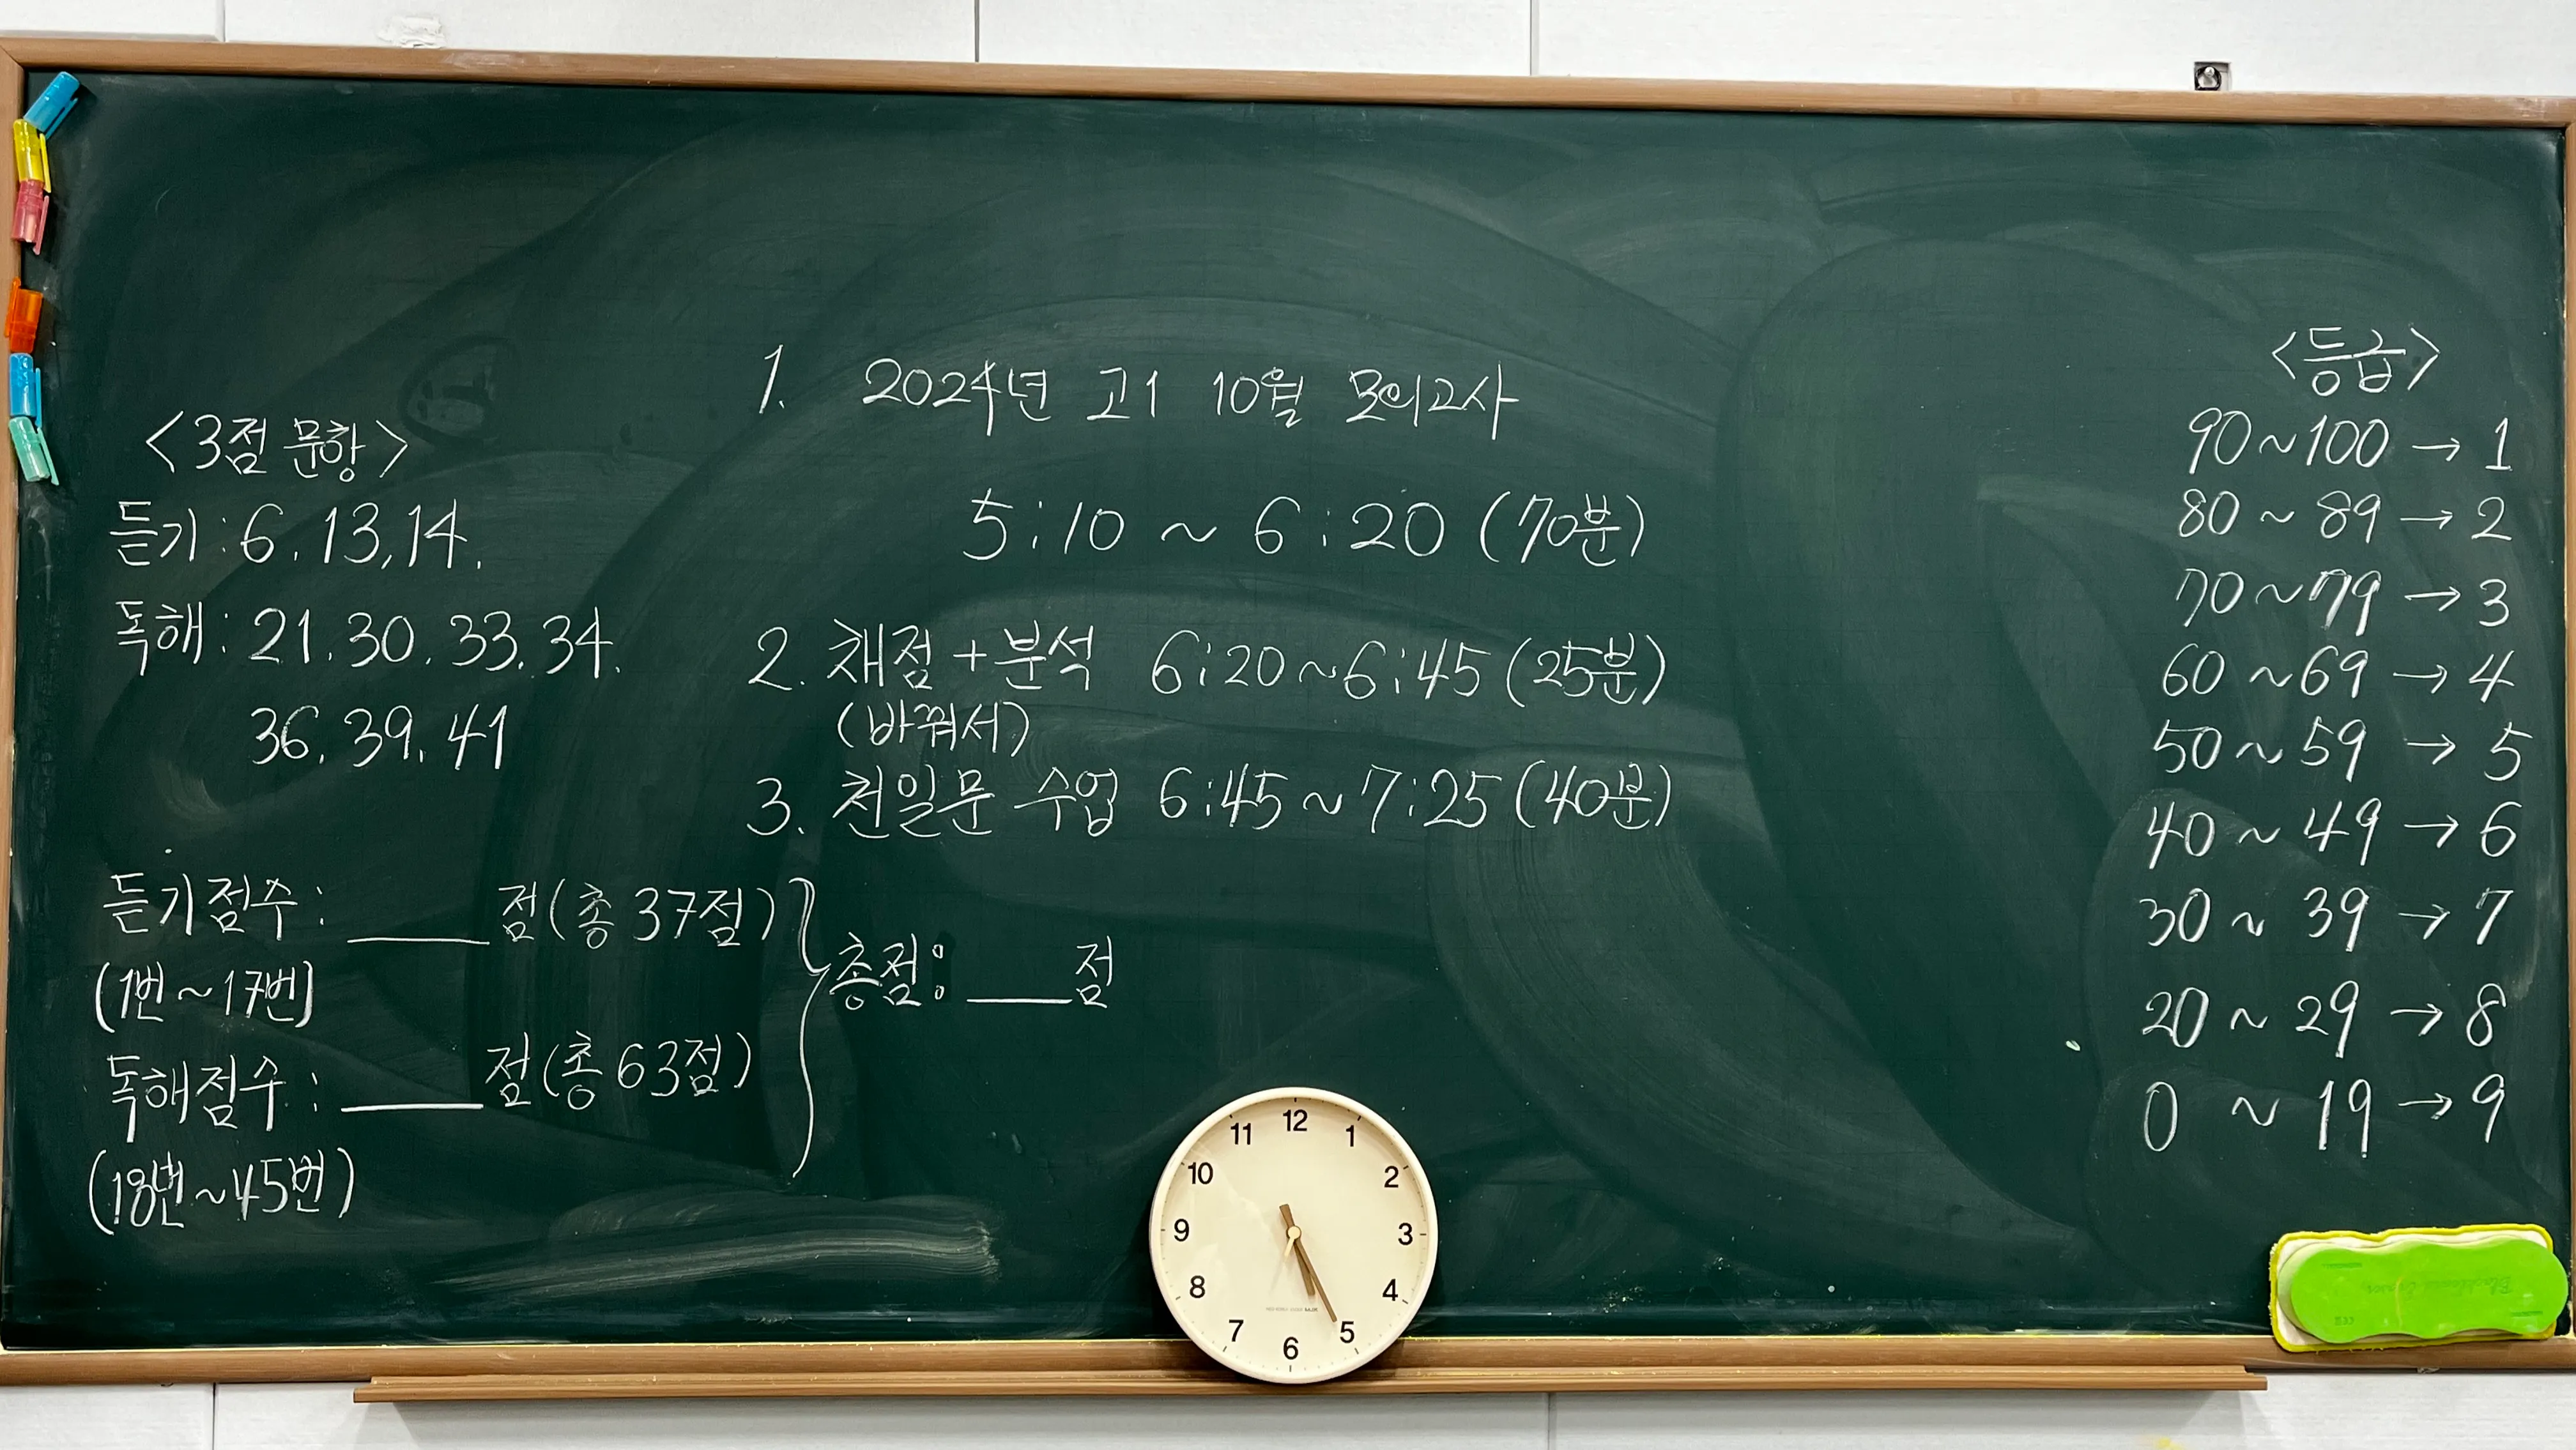 <3점 문항>
듣기 : 6. 13, 14.
독해 : 21. 30. 33. 34.
36. 39. 41
듣기점수 : ____점(총 37점)
(1번~17번)
독해점수 : ____점(총 63점)
(18번~45번)
총점: ____점
1. 2024년 고1 10월 모의고사
5:10 ~ 6:20 (70분)
2. 채점+분석 6:20~6:45 (25분)
(바꿔서)
3. 천일문 수업 6:45~7:25 (40분)
<등급>
90~100 → 1
80 ~ 89 → 2
70~79 → 3
60 ~69 → 4
50 ~ 59 → 5
40 ~ 49 → 6
30 ~ 39 → 7
20 ~ 29 → 8
0 ~ 19 → 9
12
1
2
3
4
5
6
7
8
9
10
11